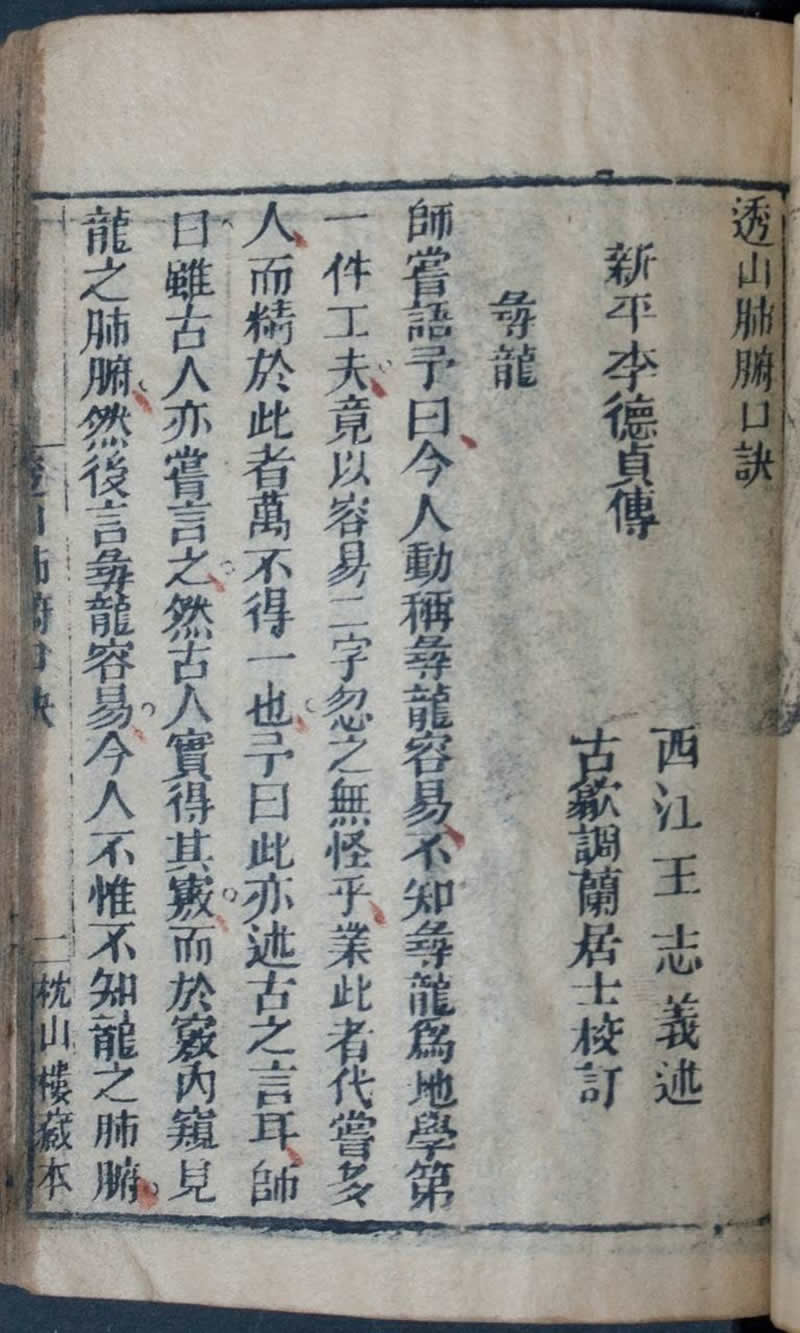 透山肺腑口訣
新平李德貞傳
西江王志義述
古歙調蘭居士校訂
尋龍
師嘗語予曰今人動稱尋龍容易不知尋龍爲地學第
一件工夫竟以容易二字忽之無怪乎業此者代嘗多
人而精於此者萬不得一也予曰此亦述古之言耳師
曰雖古人亦嘗言之然古人實得其竅而於竅內窺見
龍之肺腑然後言尋龍容易今人不惟不知龍之肺腑
透山肺腑口訣 二 枕山樓藏本